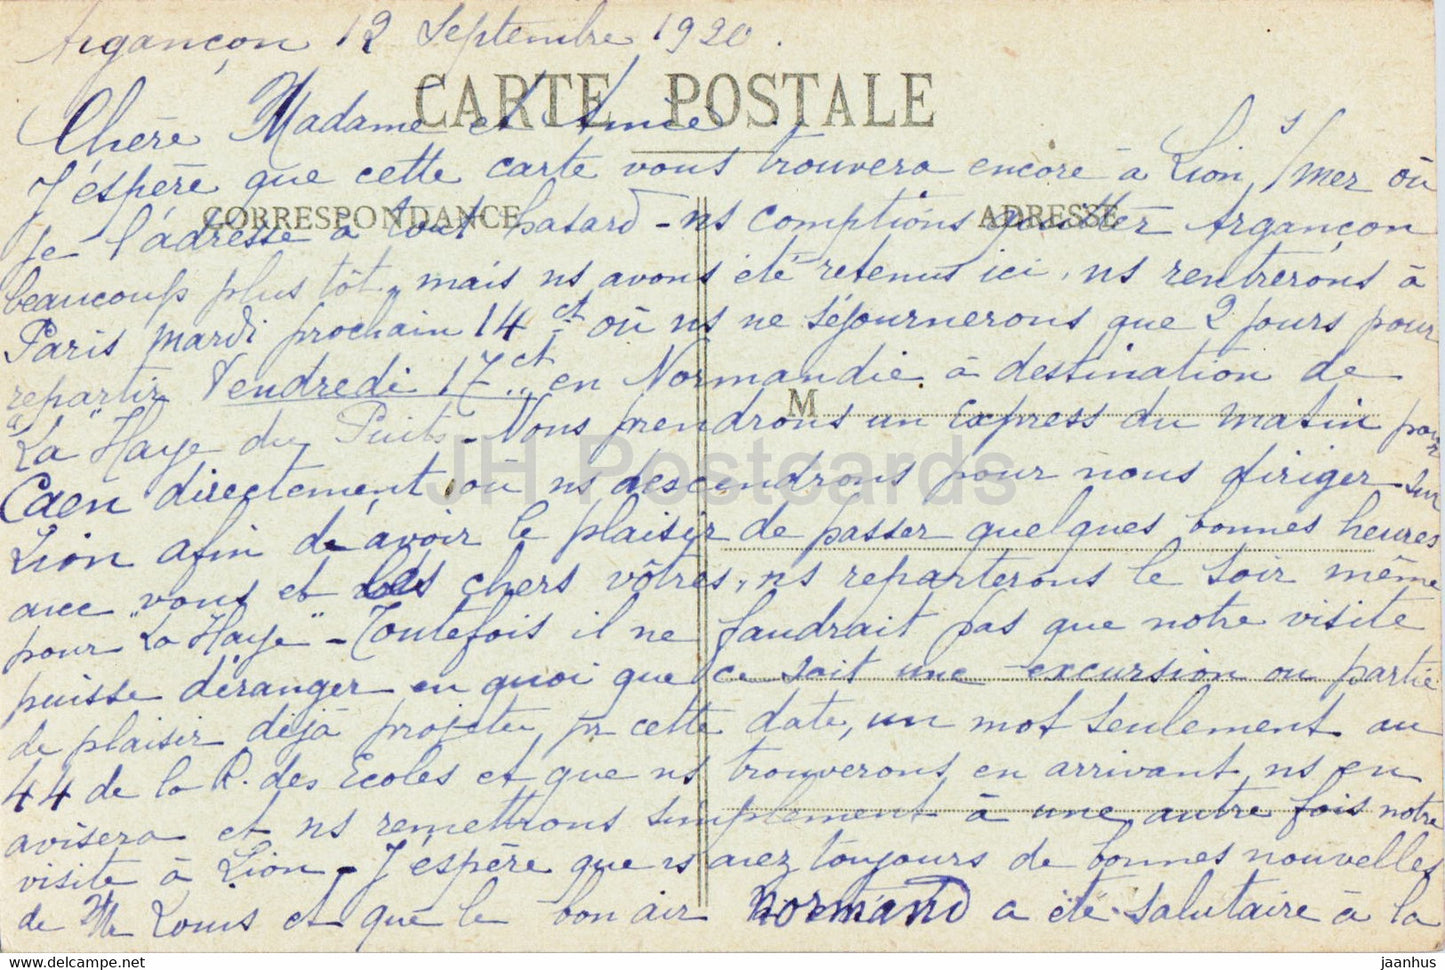 Argançon 12 Septembre 1920.
CARTE POSTALE
Chère Madame et Amie
J'éspère que cette carte vous trouvera encore à Lion s/mer où
CORRESPONDANCE
ADRESSE
je l'adresse à tout hasard - ns comptions quitter Argançon
beaucoup plus tôt, mais ns avons été retenus ici, ns rentrerons à
Paris mardi prochain 14 ct où ns ne séjournerons que 2 jours pour
repartir Vendredi 17 ct en Normandie à destination de
M
"La Haye du Puits - Nous prendrons un Express du matin pour
Caen directement où ns descendrons pour nous diriger sur
Lion afin d'avoir le plaisir de passer quelques bonnes heures
avec vous et les chers vôtres, ns reparterons le soir même
pour "La Haye" - Toutefois il ne faudrait pas que notre visite
puisse déranger en quoi que ce soit une excursion ou partie
de plaisir déjà projetée, pr cette date, un mot seulement au
44 de la R. des Ecoles et que ns trouverons en arrivant, ns en
avisera et ns remettrons simplement à une autre fois notre
visite à Lion - J'éspère que vs avez toujours de bonnes nouvelles
de Mr Louis et que le bon air normand a été salutaire à la
JH Postcards
delcampe.net
jaanhus